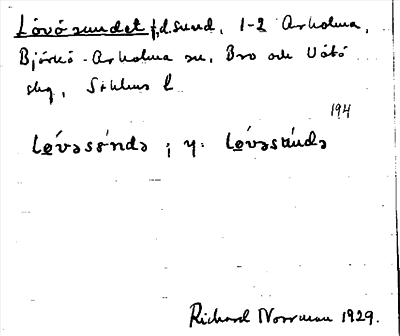 Lövösundet f.d. sund, 1-2 Arholma,
Björkö-Arholma sn, Bro och Vätö
skg, Sthlms l.
194
Lǿvǝsɵ́ndǝ ; y. Lǿvǝsúndǝ
Richard Norrman 1929.